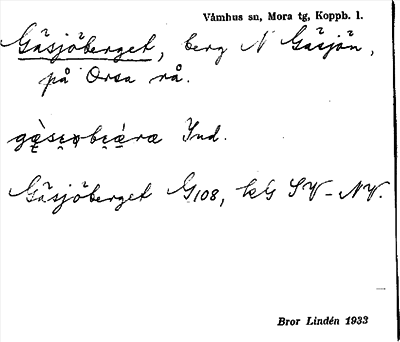 Våmhus sn, Mora tg, Koppb. l.
Gåsjöberget, berg N Gåsjön,
på Orsa rå.
Ind.
Gåsjöberget G108, kG SV-NV.
Bror Lindén 1933